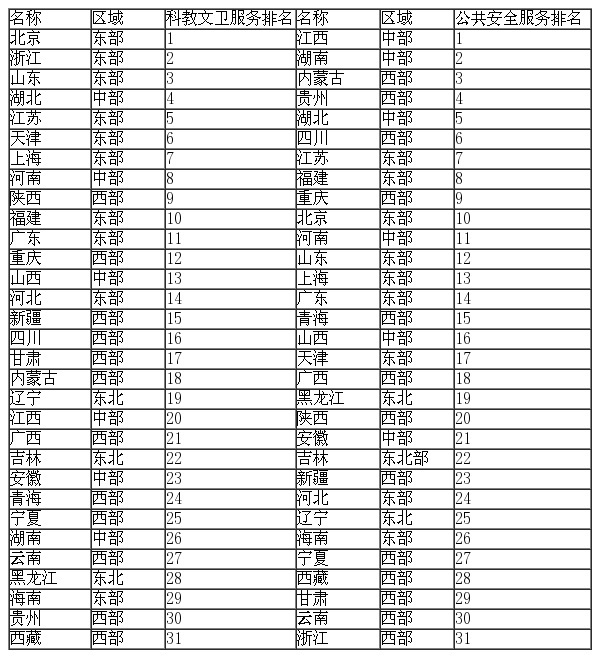 名称 区域 科教文卫服务排名 名称 区域 公共安全服务排名
北京 东部 1 江西 中部 1
浙江 东部 2 湖南 中部 2
山东 东部 3 内蒙古 西部 3
湖北 中部 4 贵州 西部 4
江苏 东部 5 湖北 中部 5
天津 东部 6 四川 西部 6
上海 东部 7 江苏 东部 7
河南 中部 8 福建 东部 8
陕西 西部 9 重庆 西部 9
福建 东部 10 北京 东部 10
广东 东部 11 河南 中部 11
重庆 西部 12 山东 东部 12
山西 中部 13 上海 东部 13
河北 东部 14 广东 东部 14
新疆 西部 15 青海 西部 15
四川 西部 16 山西 中部 16
甘肃 西部 17 天津 东部 17
内蒙古 西部 18 广西 西部 18
辽宁 东北 19 黑龙江 东北 19
江西 中部 20 陕西 西部 20
广西 西部 21 安徽 中部 21
吉林 东北 22 吉林 东北部 22
安徽 中部 23 新疆 西部 23
青海 西部 24 河北 东部 24
宁夏 西部 25 辽宁 东北 25
湖南 中部 26 海南 东部 26
云南 西部 27 宁夏 西部 27
黑龙江 东北 28 西藏 西部 28
海南 东部 29 甘肃 西部 29
贵州 西部 30 云南 西部 30
西藏 西部 31 浙江 西部 31